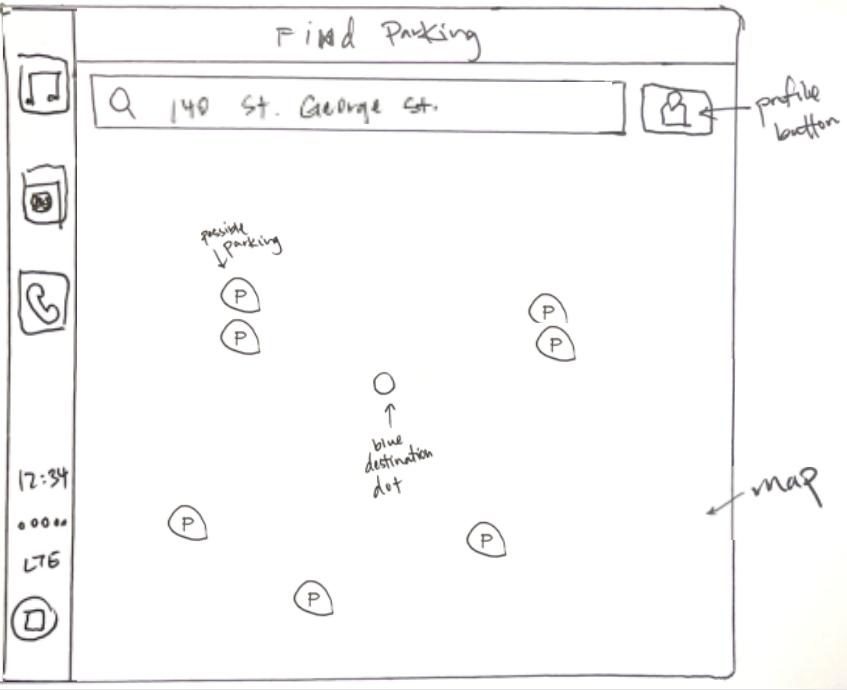 Find Parking
140 St. George St.
profile
button
possible
parking
P
P
P
P
blue
destination
dot
map
12:34
LTE
P
P
P